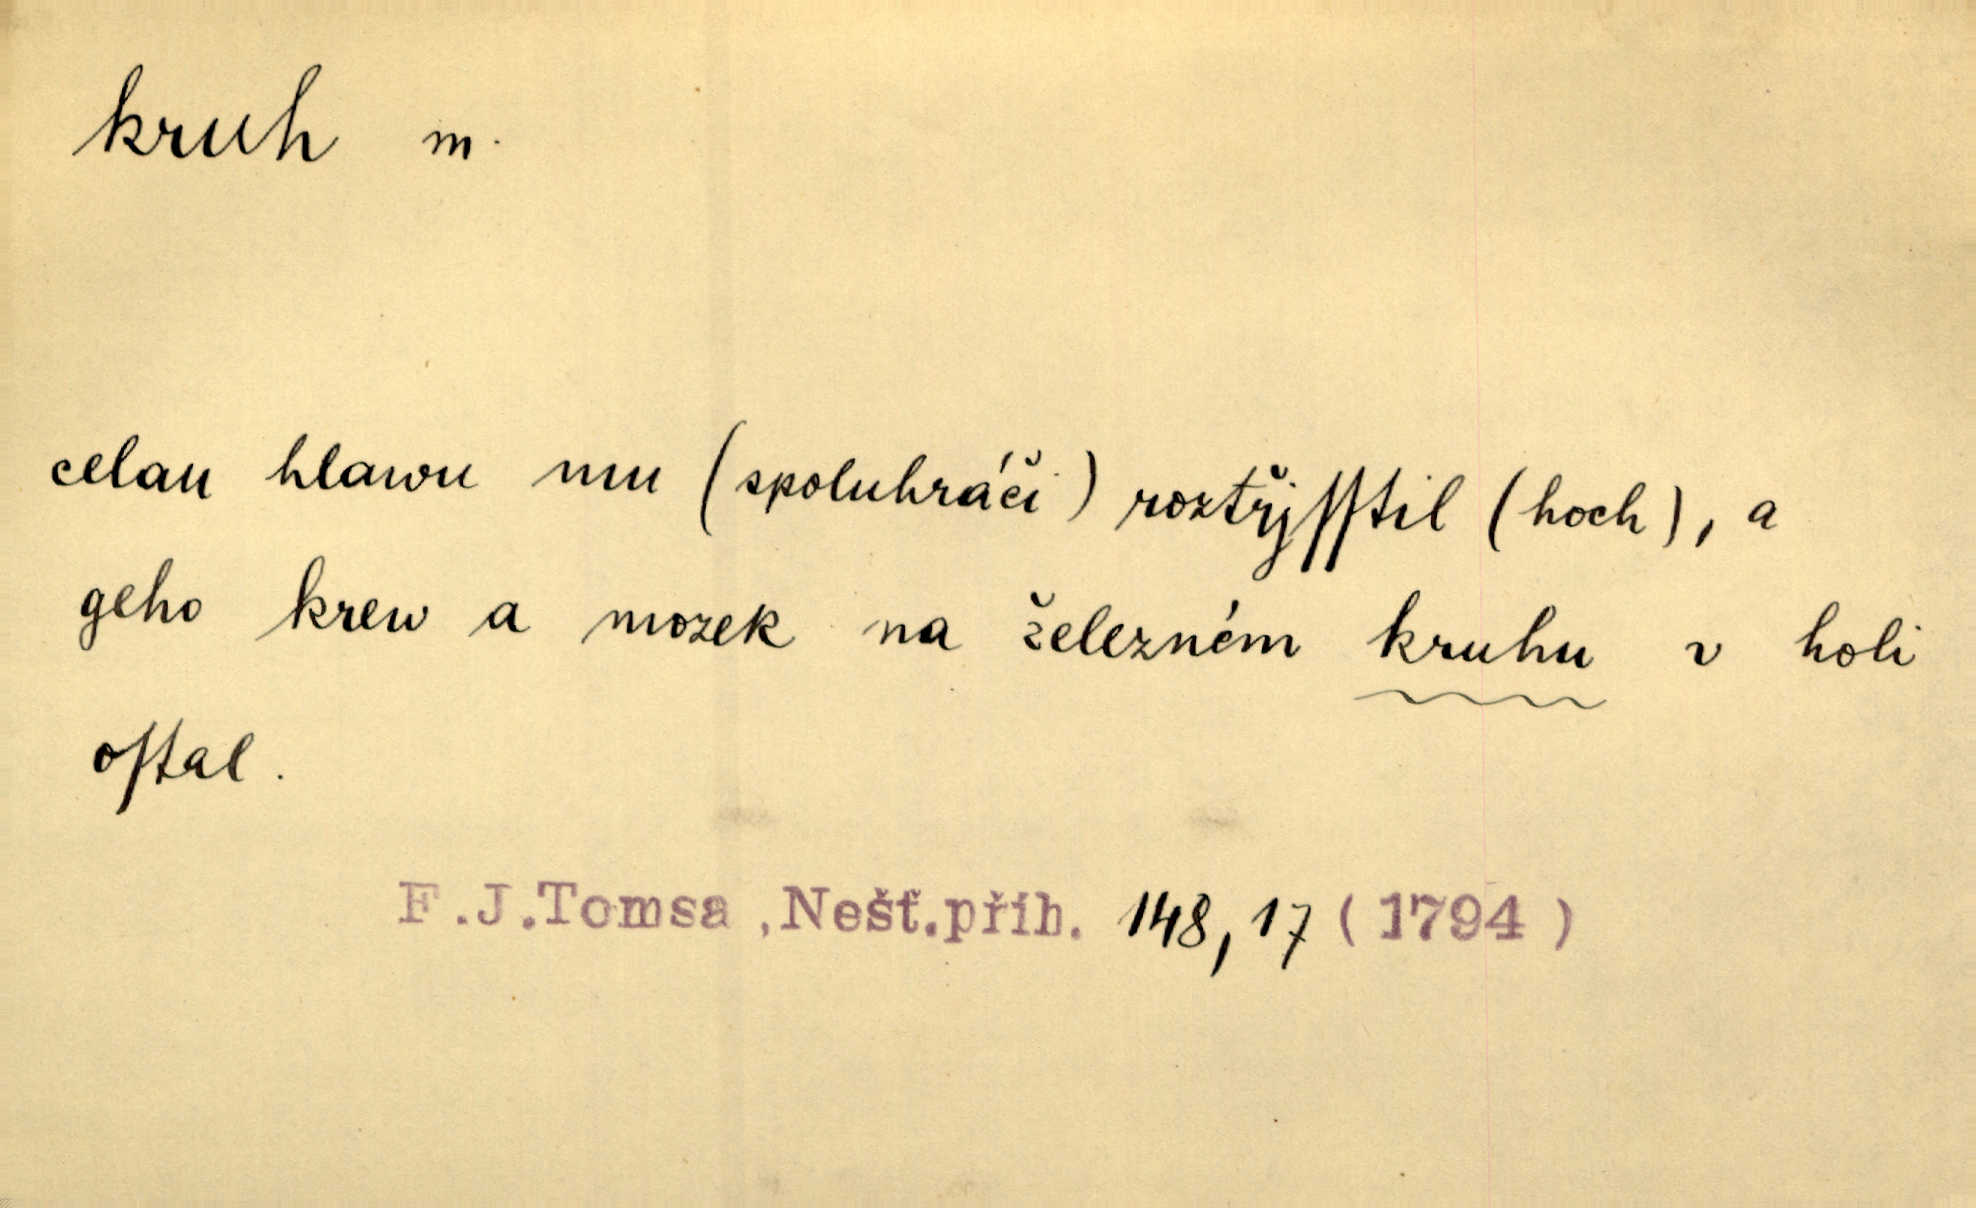 kruh m.
celau hlawu mu (spoluhráči) roztřjſſtil (hoch), a
geho krew a mozek na železném kruhu v holi
oſtal.
F.J.Tomsa,Nešť.příh. 148,17 (1794)